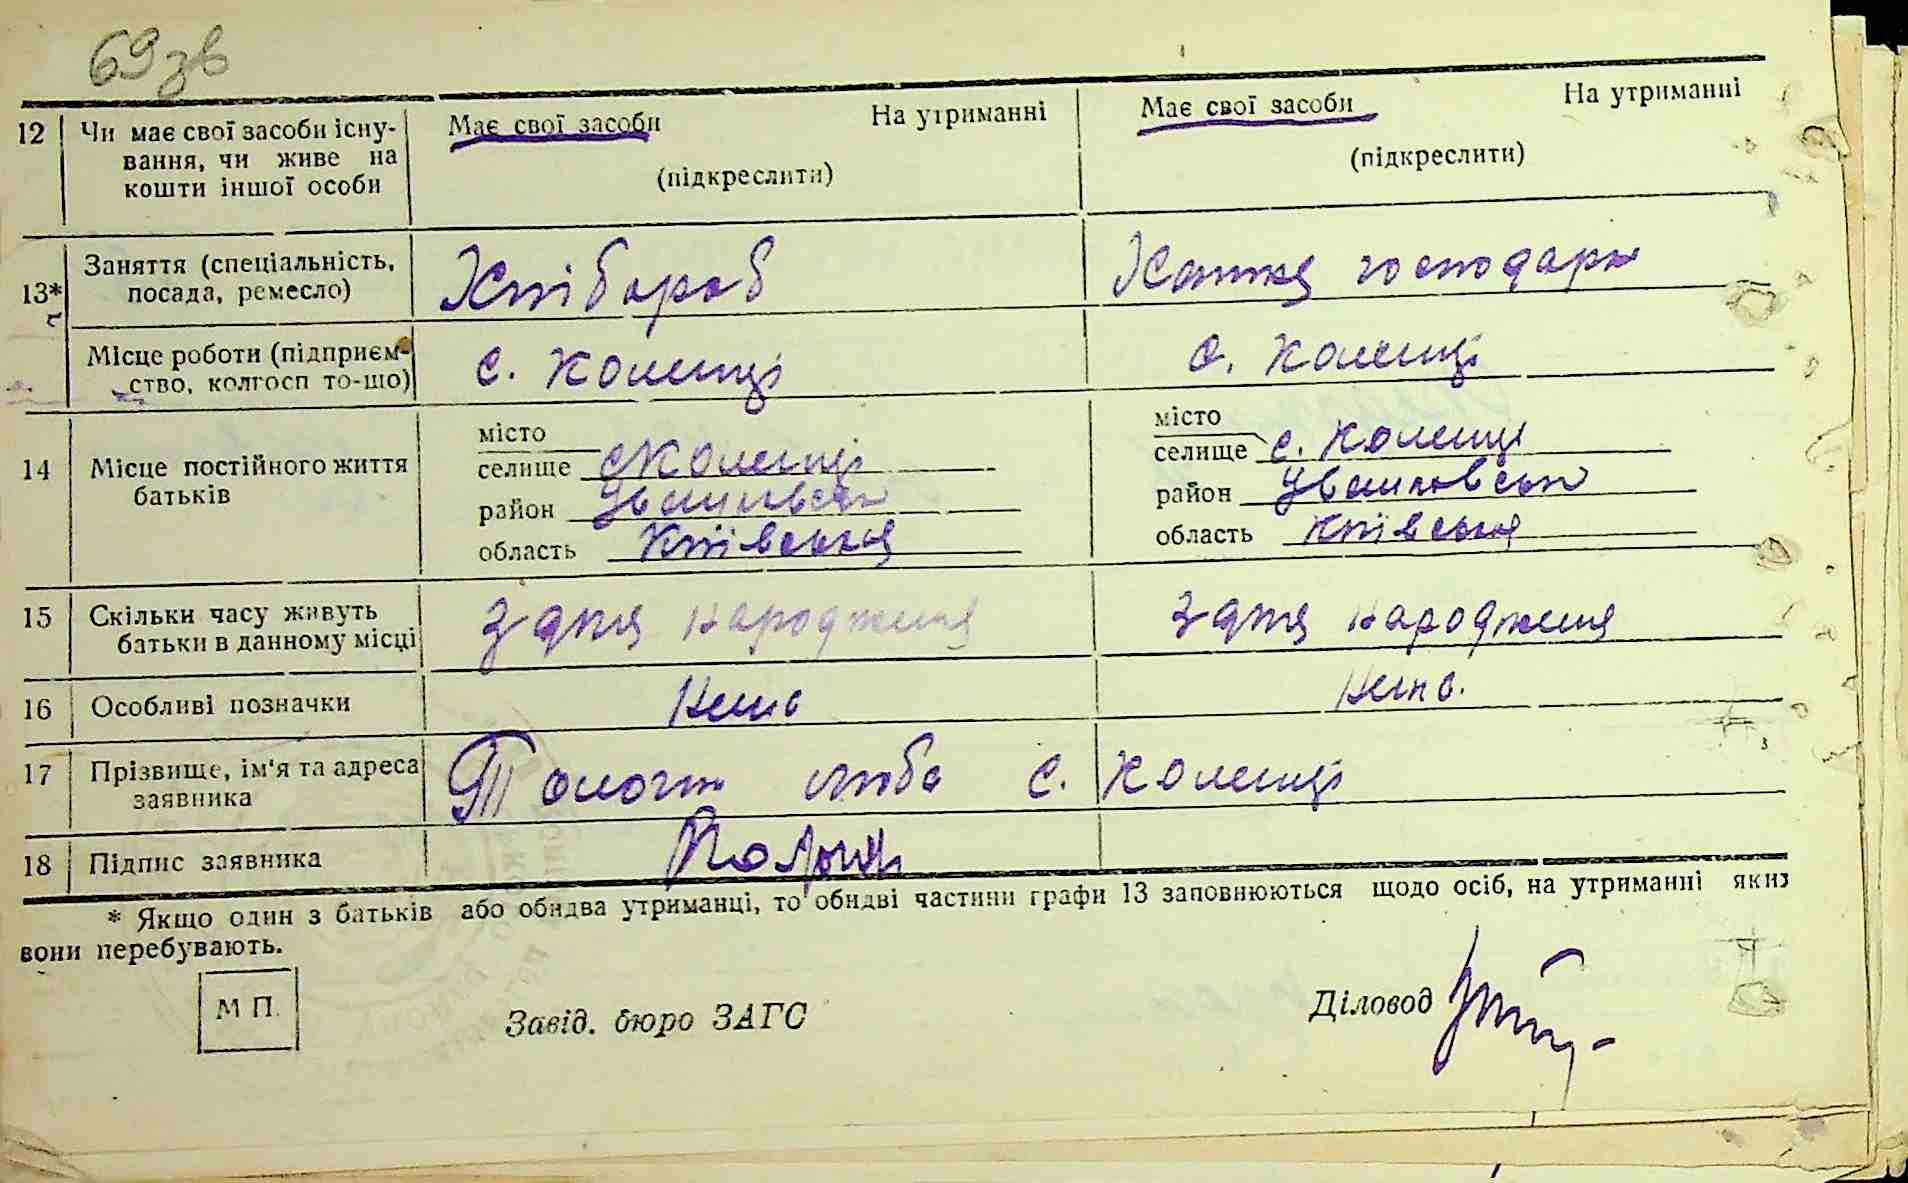 69зв
12 Чи має свої засоби існу-
вання, чи живе на
кошти іншої особи
Має свої засоби На утриманні
(підкреслити)
Має свої засоби На утриманні
(підкреслити)
13* Заняття (спеціальність,
посада, ремесло)
Хлібороб
Хатня господарк
Місце роботи (підприєм-
ство, колгосп то-що)
с. Коленці
с. Коленці
14 Місце постійного життя
батьків
місто
селище с Коленці
район
область Київська
місто
селище с. Коленці
район
область Київська
15 Скільки часу живуть
батьки в данному місці
З дня народженя
З дня народженя
16 Особливі позначки
Нема
Нема.
17 Прізвище, ім'я та адреса
заявника
люба с. Коленці
18 Підпис заявника
* Якщо один з батьків або обидва утриманці, то обидві частини графи 13 заповнюються щодо осіб, на утриманні яких
вони перебувають.
М П.
Завід. бюро ЗАГС
Діловод